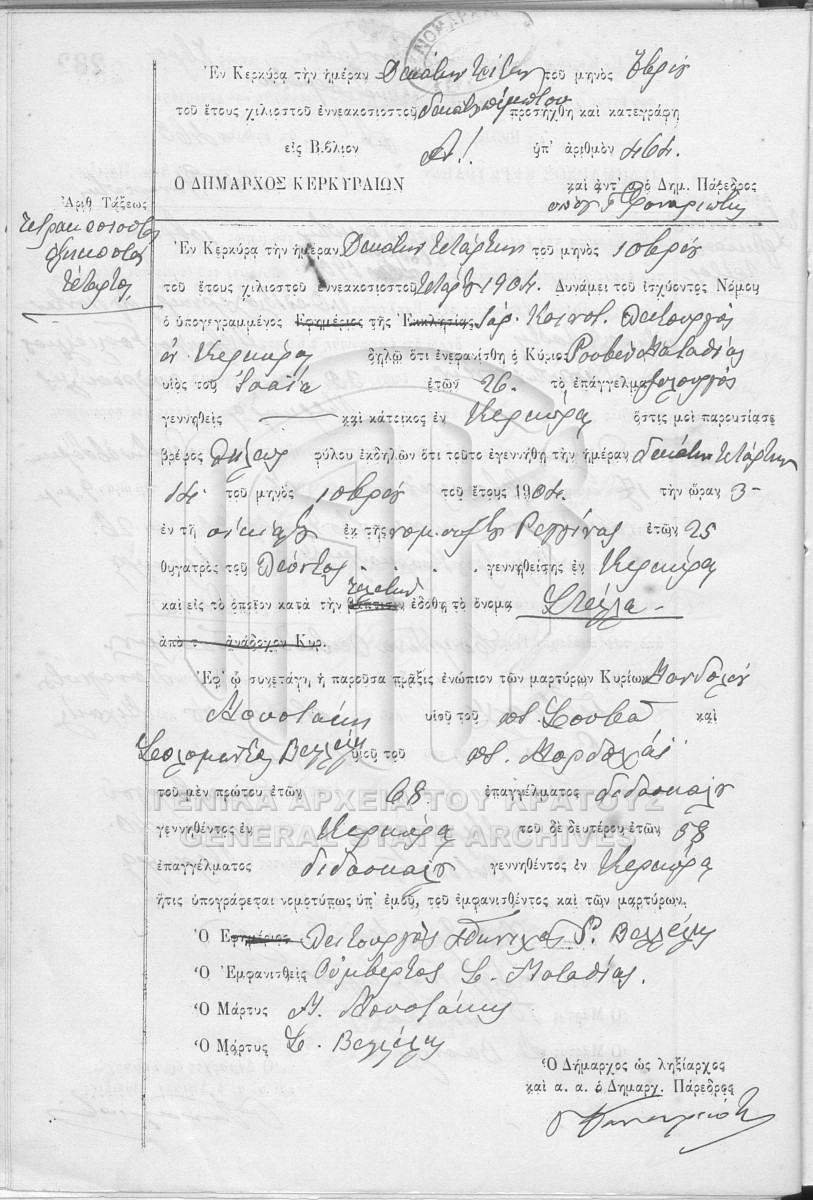 ΝΟΜΑΡΧΙ
Ἐν Κερκύρᾳ τὴν ἡμέραν Δεκάτην τρίτην τοῦ μηνὸς
τοῦ ἔτους χιλιοστοῦ ἐννεακοσιοστοῦ δεκάτου πέμπτου προσήχθη καὶ κατεγράφη
εἰς Βιβλίον Α! ὑπ' ἀριθμὸν 464.
Ο ΔΗΜΑΡΧΟΣ ΚΕΡΚΥΡΑΙΩΝ καὶ ἀντ' αὐτοῦ ὁ Δημ. Πάρεδρος
Ἀριθ Τάξεως
τετρακοσιοστὸς
ἑξηκοστὸς
τέταρτος
Ἐν Κερκύρᾳ τὴν ἡμέραν Δεκάτην τετάρτην τοῦ μηνὸς 10βρίου
τοῦ ἔτους χιλιοστοῦ ἐννεακοσιοστοῦ τετάρτου 1904. Δυνάμει τοῦ ἰσχύοντος Νόμου
ὁ ὑπογεγραμμένος Ἐφημέριος τῆς Ἐκκλησίας Ἰσρ. Κοινοτ. Λειτουργὸς
ἐν Κερκύρᾳ δηλῶ ὅτι ἐνεφανίσθη ὁ Κύριος Ρουβὲν Ματαθίας
υἱὸς τοῦ Ἰσαΐα ἐτῶν 26. τὸ ἐπάγγελμα
γεννηθεὶς — καὶ κάτοικος ἐν Κερκύρᾳ ὅστις μοὶ παρουσίασε
βρέφος θήλεως φύλου ἐκδηλῶν ὅτι τοῦτο ἐγεννήθη τὴν ἡμέραν δεκάτην τετάρτην
14. τοῦ μηνὸς 10βρίου τοῦ ἔτους 1904. τὴν ὥραν 3-
ἐν τῇ οἰκίᾳ του ἐκ τῆς νομ. συζ. του Ρεγγίνας ἐτῶν 25
θυγατρὸς τοῦ Λεόντος . . . . γεννηθείσης ἐν Κερκύρᾳ
τελετὴν
καὶ εἰς τὸ ὁποῖον κατὰ τὴν βάπτισιν ἐδόθη τὸ ὄνομα Στέλλα -
ἀπὸ τ ἀνάδοχον Κυρ.
Ἐφ' ᾧ συνετάγη ἡ παροῦσα πρᾶξις ἐνώπιον τῶν μαρτύρων Κυρίων Μανδολίνου
Μουστάκη υἱοῦ τοῦ ποτ. καὶ
Σολομῶντος Βελλέλη υἱοῦ τοῦ ποτ. Μορδοχάϊ
τοῦ μὲν πρώτου ἐτῶν 68. ἐπαγγέλματος διδασκάλου
ΓΕΝΙΚΑ ΑΡΧΕΙΑ ΤΟΥ ΚΡΑΤΟΥΣ
γεννηθέντος ἐν Κερκύρᾳ τοῦ δὲ δευτέρου ἐτῶν 58
GENERAL STATE ARCHIVES
ἐπαγγέλματος διδασκάλου γεννηθέντος ἐν Κερκύρᾳ
ἥτις ὑπογράφεται νομοτύπως ὑπ' ἐμοῦ, τοῦ ἐμφανισθέντος καὶ τῶν μαρτύρων.
Ὁ Ἐφημέριος Λειτουργὸς Βελλέλης
Ὁ Ἐμφανισθεὶς Οὐμβέρτος Σ. Ματαθίας.
Ὁ Μάρτυς Μ. Μουστάκης
Ὁ Μάρτυς Σ. Βελλέλης
Ὁ Δήμαρχος ὡς ληξίαρχος
καὶ α. α. ὁ Δημαρχ. Πάρεδρος